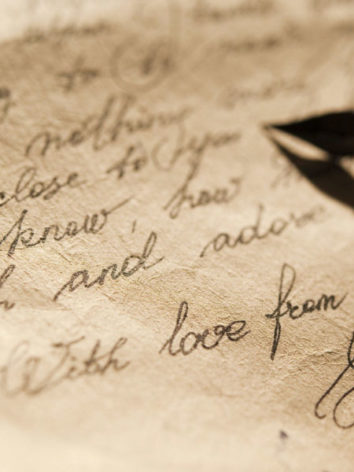 to
nothing
close to you
know, how
and adore
With love from